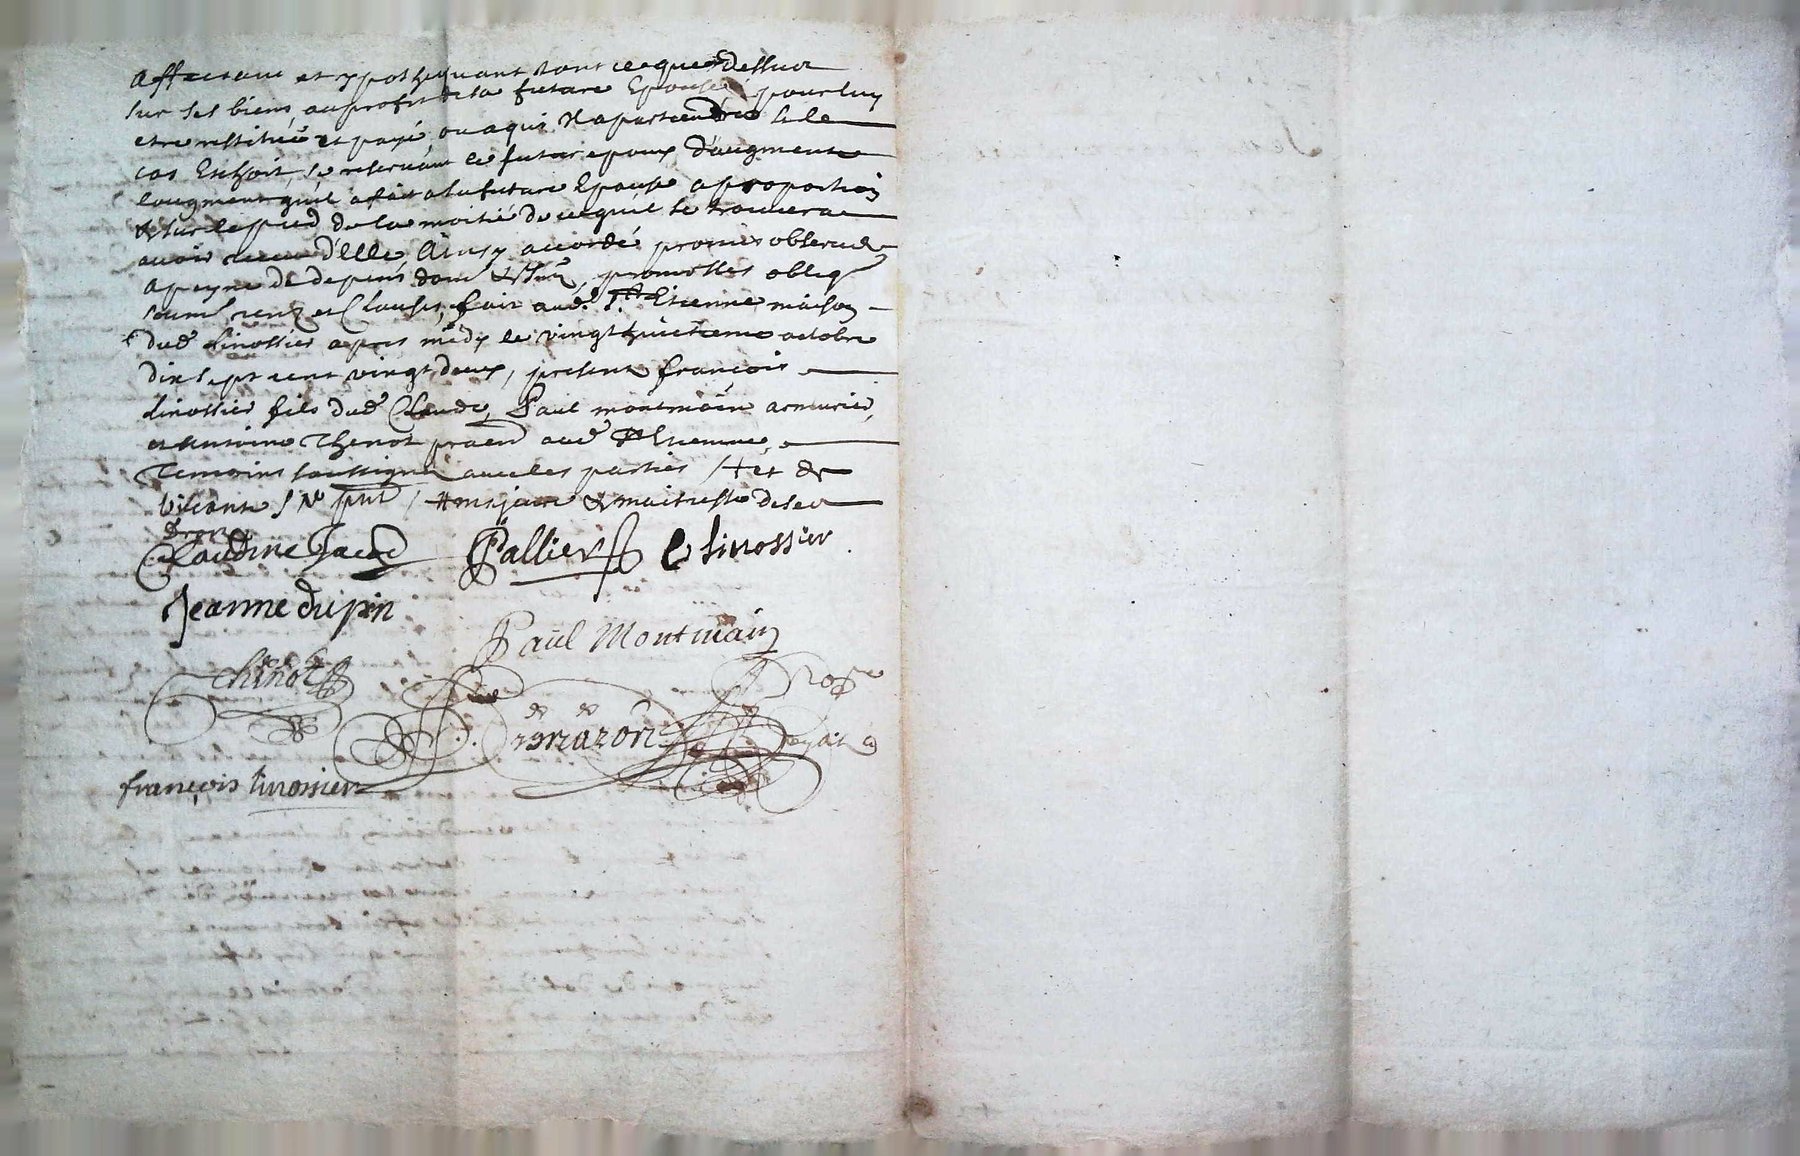 affectant et ypothequant tout ce que dessus
sur ses biens au profit de la future Epouse pour luy
etre restitué et payé ou a qui Il apartiendra le
cas Escheit, se reservant le futur epoux d'augmenter
laugment quil a fait a la future Epouse a proportion
& sur le pied de la moitié de ce quil se trouvera
avoir receu d'Elle Ainsy accordé promis observer
a peyne de depens dom
 promesses oblig
soum renz et Clauses, fait aud. St. Etienne maison
dud Linossier apres midy le vingt huictieme octobre
dix sept cent vingt deux, presents françois
Linossier fils dud Claude, Paul montmain armurier,
et Antoine Thenot praen aud St Etienne
Temoins soussignez avec les parties / et de
/ & maitresse de ses
droits
Claudine Jacod Pallier C linossier
Jeanne dupin
Paul Montmain
Chenot
françois linossier